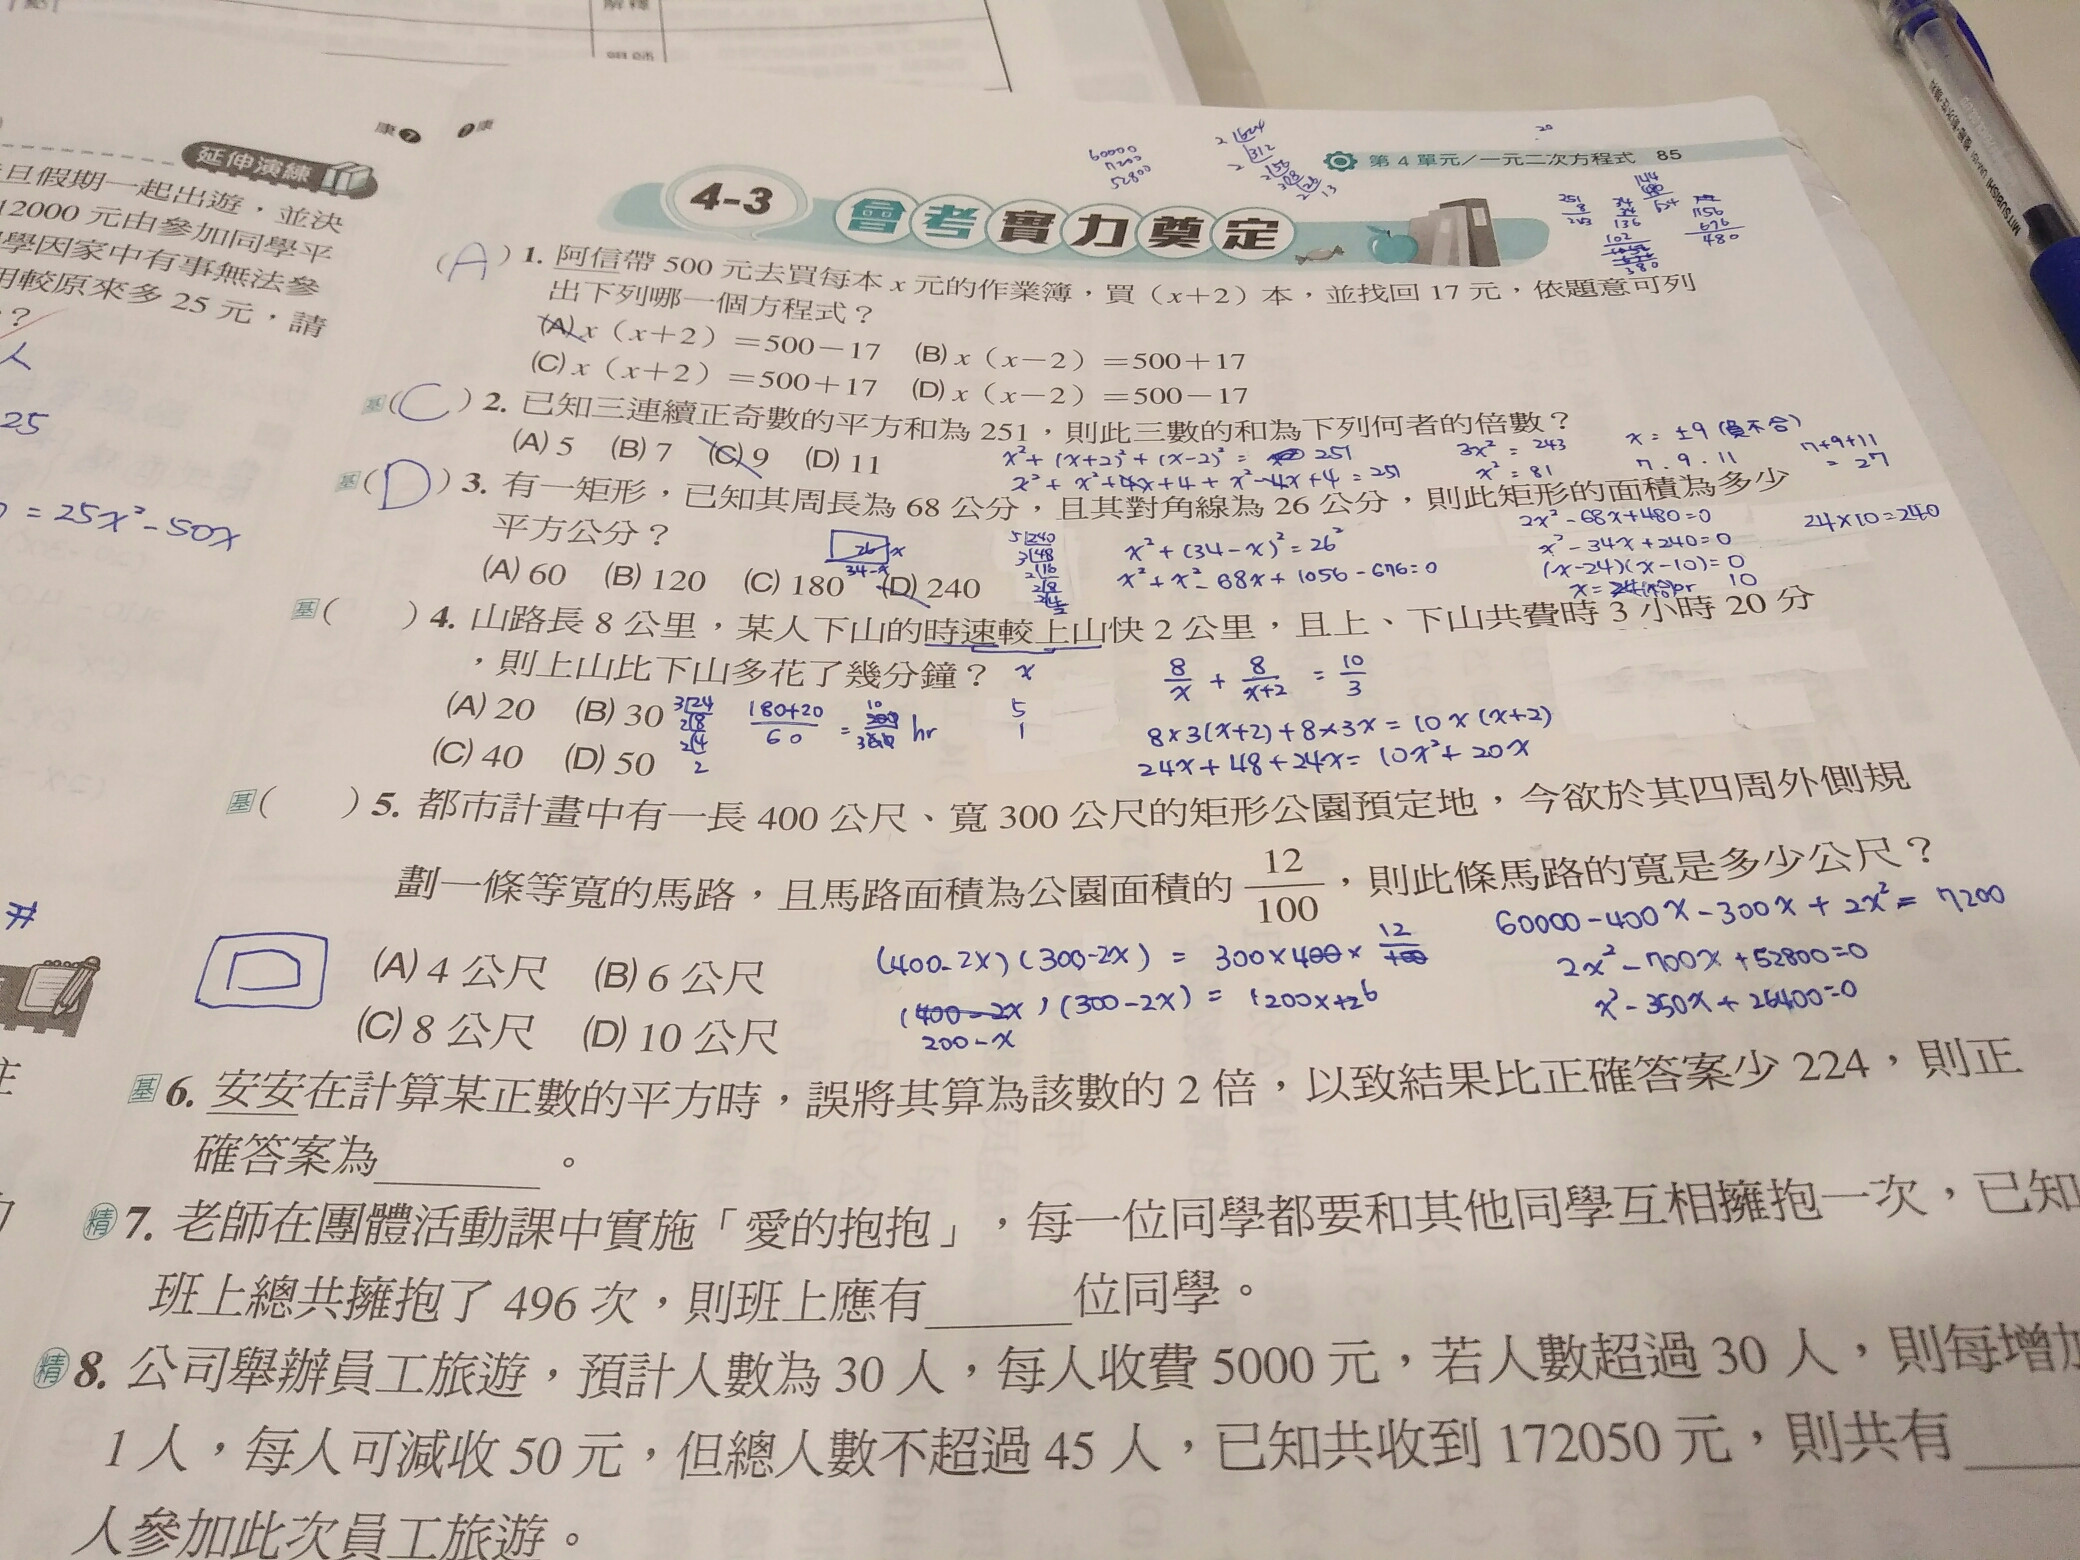 解釋
延伸演練
旦假期一起出遊，並決
12000 元由參加同學平
學因家中有事無法參
用較原來多 25 元，請
？
人
25
= 25x² - 50x
康 7
7 康
第 4 單元／一元二次方程式 85
60000
7200
52800
4-3 會考實力奠定
(A) 1. 阿信帶 500 元去買每本 x 元的作業簿，買（x＋2）本，並找回 17 元，依題意可列
出下列哪一個方程式？
(A) x（x＋2）＝500－17 (B) x（x－2）＝500＋17
(C) x（x＋2）＝500＋17 (D) x（x－2）＝500－17
基(C) 2. 已知三連續正奇數的平方和為 251，則此三數的和為下列何者的倍數？
(A) 5 (B) 7 (C) 9 (D) 11
x² + (x+2)² + (x-2)² = 251
x² + x² + 4x + 4 + x² - 4x + 4 = 251
3x² = 243
x² = 81
x = ±9 (負不合)
7 . 9 . 11
7+9+11
= 27
基(D) 3. 有一矩形，已知其周長為 68 公分，且其對角線為 26 公分，則此矩形的面積為多少
平方公分？
(A) 60 (B) 120 (C) 180 (D) 240
26 x
34-x
x² + (34-x)² = 26²
x² + x² - 68x + 1056 - 676 = 0
2x² - 68x + 480 = 0
x² - 34x + 240 = 0
(x-24)(x-10) = 0
24×10 = 240
基( ) 4. 山路長 8 公里，某人下山的時速較上山快 2 公里，且上、下山共費時 3 小時 20 分
，則上山比下山多花了幾分鐘？
(A) 20 (B) 30
(C) 40 (D) 50
180+20 / 60
hr
x
5
1
8/x + 8/x+2 = 10/3
8×3(x+2) + 8×3x = 10x(x+2)
24x + 48 + 24x = 10x² + 20x
基( ) 5. 都市計畫中有一長 400 公尺、寬 300 公尺的矩形公園預定地，今欲於其四周外側規
劃一條等寬的馬路，且馬路面積為公園面積的 12/100，則此條馬路的寬是多少公尺？
(A) 4 公尺 (B) 6 公尺
(C) 8 公尺 (D) 10 公尺
(400-2x)(300-2x) = 300×400× 12/100
(400-2x)(300-2x) = 1200x+2
200-x
60000 - 400x - 300x + 2x² = 7200
2x² - 700x + 52800 = 0
x² - 350x + 26400 = 0
基 6. 安安在計算某正數的平方時，誤將其算為該數的 2 倍，以致結果比正確答案少 224，則正
確答案為 。
精 7. 老師在團體活動課中實施「愛的抱抱」，每一位同學都要和其他同學互相擁抱一次，已知
班上總共擁抱了 496 次，則班上應有 位同學。
精 8. 公司舉辦員工旅遊，預計人數為 30 人，每人收費 5000 元，若人數超過 30 人，則每增加
1 人，每人可減收 50 元，但總人數不超過 45 人，已知共收到 172050 元，則共有
人參加此次員工旅遊。